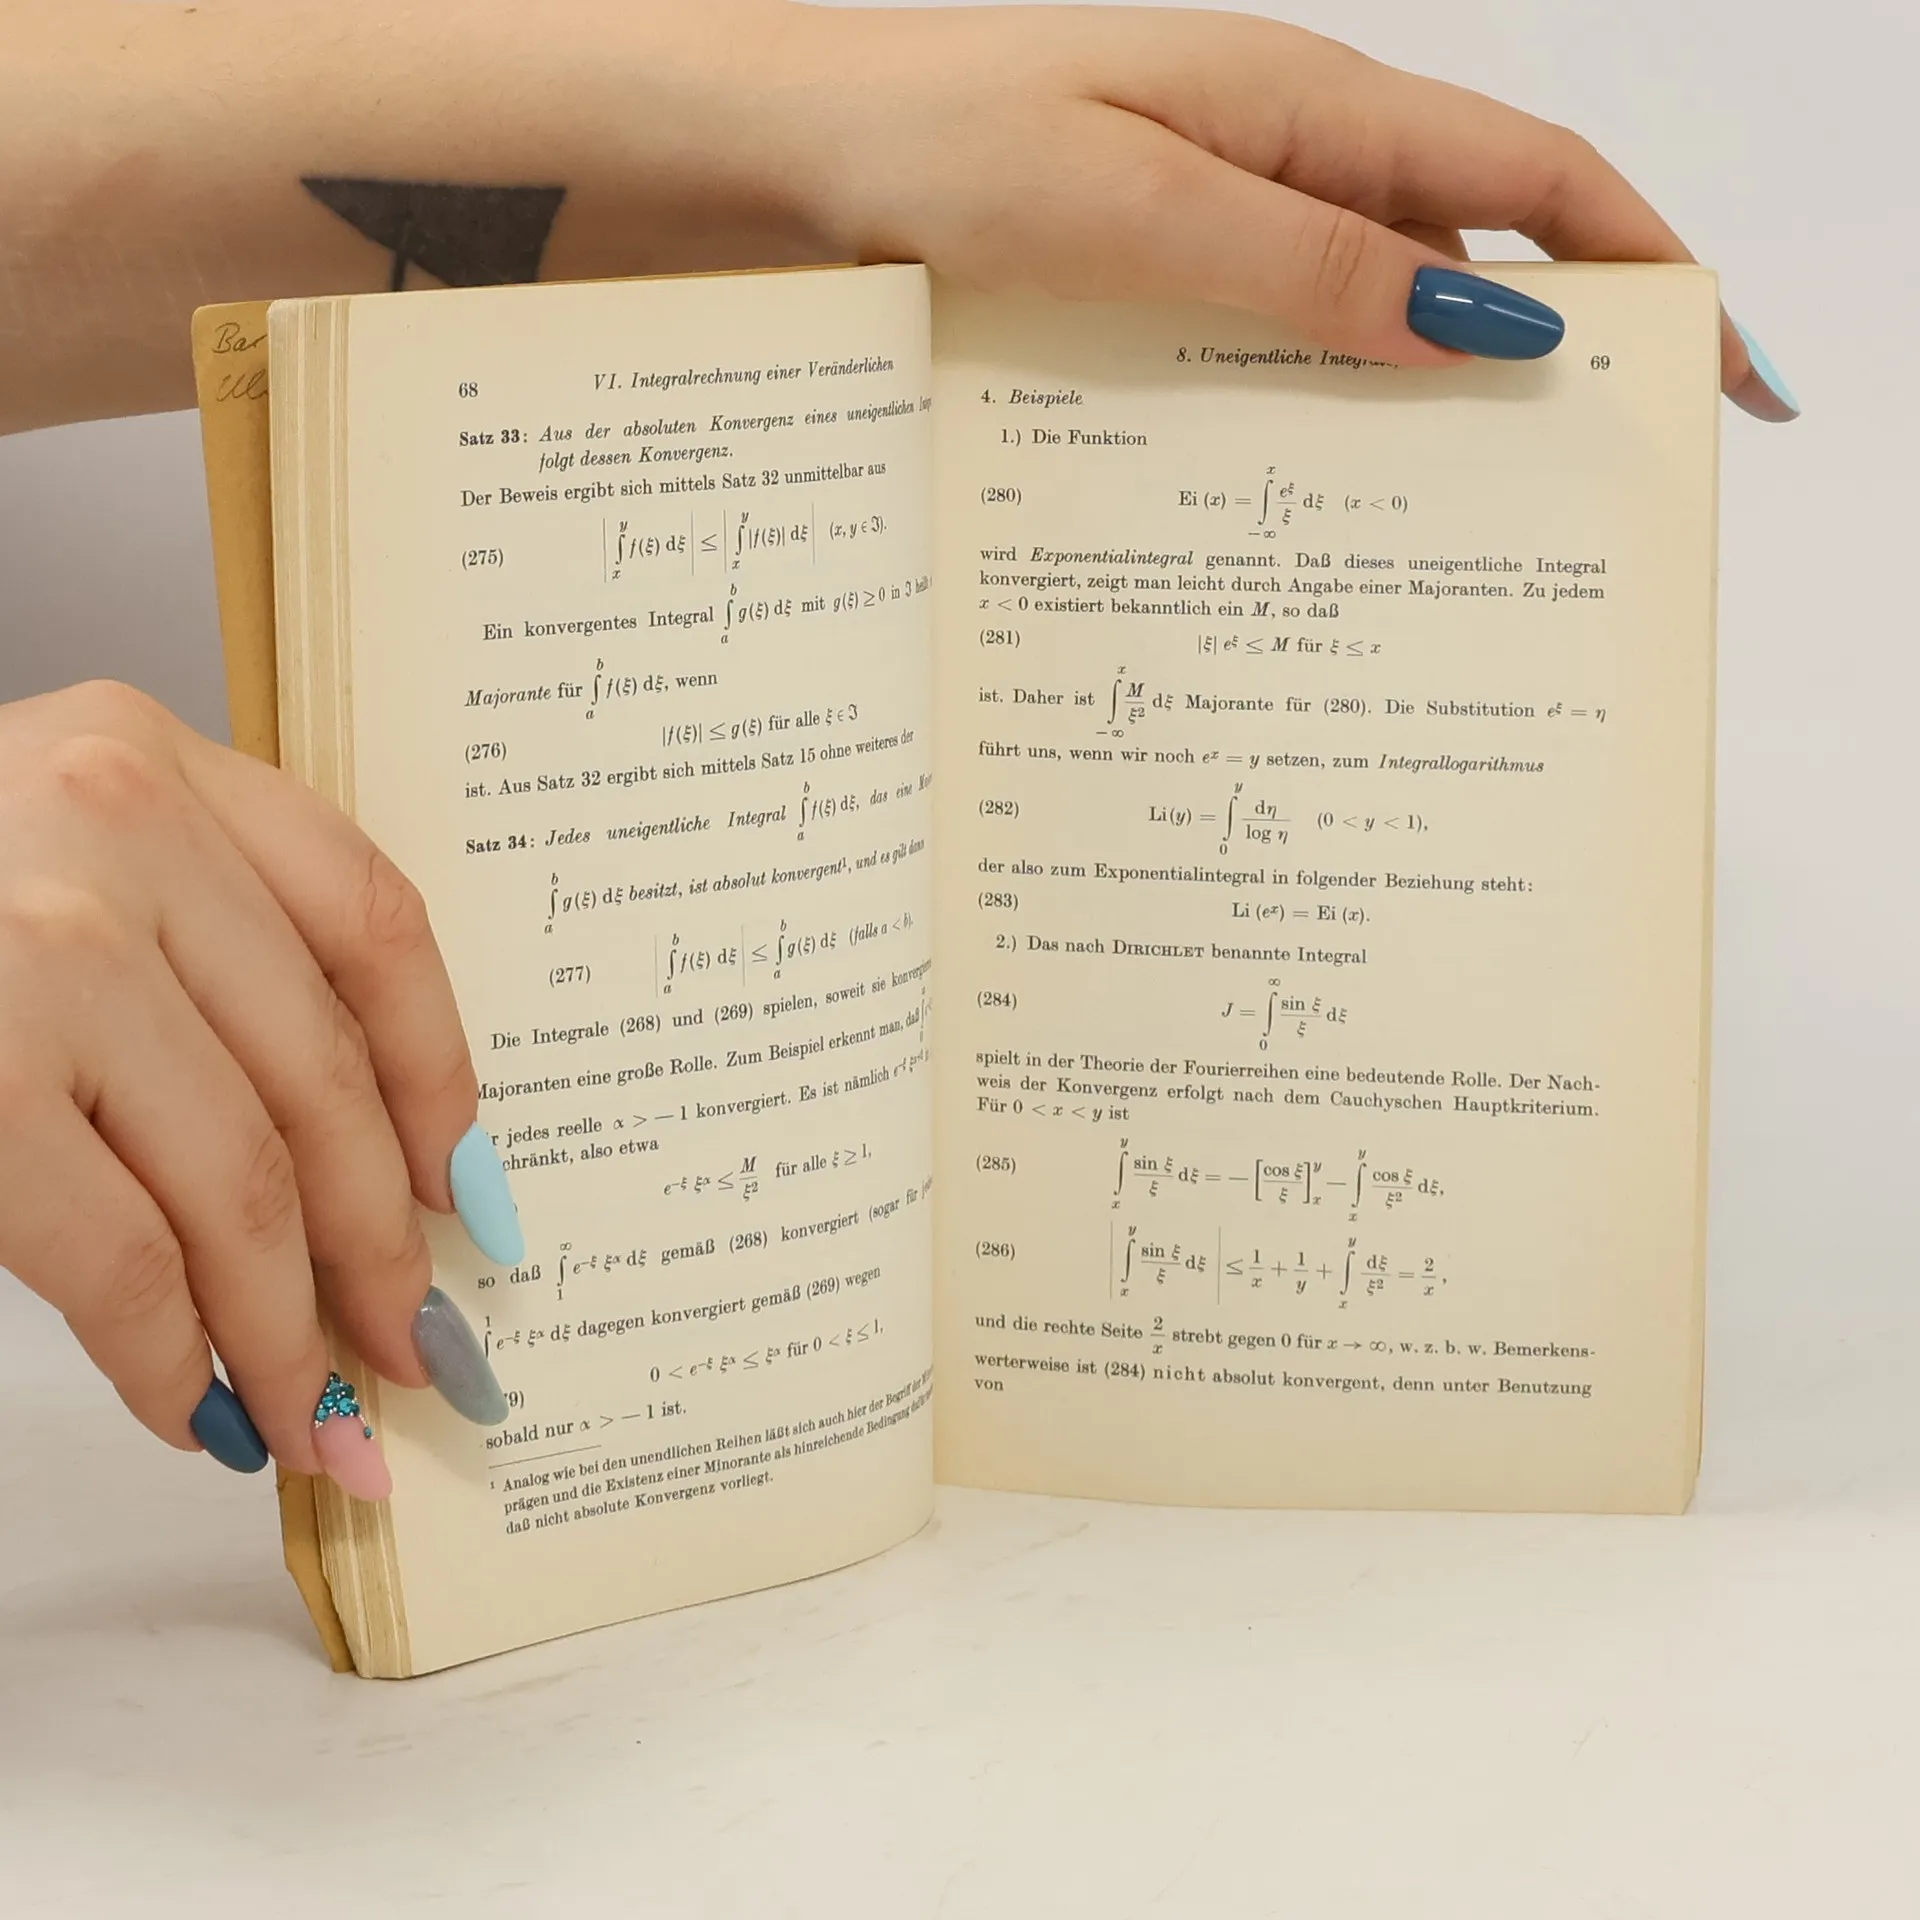 Bar
68 VI. Integralrechnung einer Veränderlichen
Satz 33: Aus der absoluten Konvergenz eines uneigentlichen
folgt dessen Konvergenz.
Der Beweis ergibt sich mittels Satz 32 unmittelbar aus
(275) |∫_x^y f(ξ) dξ| ≤ |∫_x^y |f(ξ)| dξ| (x, y ∈ ℑ).
Ein konvergentes Integral ∫_a^b g(ξ) dξ mit g(ξ) ≥ 0 in ℑ
Majorante für ∫_a^b f(ξ) dξ, wenn
(276) |f(ξ)| ≤ g(ξ) für alle ξ ∈ ℑ
ist. Aus Satz 32 ergibt sich mittels Satz 15 ohne weiteres der
Satz 34: Jedes uneigentliche Integral ∫_a^b f(ξ) dξ, das eine
∫_a^b g(ξ) dξ besitzt, ist absolut konvergent¹, und es gilt dann
(277) |∫_a^b f(ξ) dξ| ≤ ∫_a^b g(ξ) dξ (falls a < b).
Die Integrale (268) und (269) spielen, soweit sie
Majoranten eine große Rolle. Zum Beispiel erkennt man, daß
r jedes reelle α > — 1 konvergiert. Es ist nämlich
chränkt, also etwa
e^{-ξ} ξ^α ≤ M/ξ² für alle ξ ≥ 1,
so daß ∫_1^∞ e^{-ξ} ξ^α dξ gemäß (268) konvergiert (sogar für
∫^1 e^{-ξ} ξ^α dξ dagegen konvergiert gemäß (269) wegen
9) 0 < e^{-ξ} ξ^α ≤ ξ^α für 0 < ξ ≤ 1,
sobald nur α > — 1 ist.
¹ Analog wie bei den unendlichen Reihen läßt sich auch hier der Begriff der
prägen und die Existenz einer Minorante als hinreichende Bedingung dafür
daß nicht absolute Konvergenz vorliegt.
8. Uneigentliche 69
4. Beispiele
1.) Die Funktion
(280) Ei (x) = ∫_{-∞}^x e^ξ/ξ dξ (x < 0)
wird Exponentialintegral genannt. Daß dieses uneigentliche Integral
konvergiert, zeigt man leicht durch Angabe einer Majoranten. Zu jedem
x < 0 existiert bekanntlich ein M, so daß
(281) |ξ| e^ξ ≤ M für ξ ≤ x
ist. Daher ist ∫_{-∞}^x M/ξ² dξ Majorante für (280). Die Substitution e^ξ = η
führt uns, wenn wir noch e^x = y setzen, zum Integrallogarithmus
(282) Li (y) = ∫_0^y dη/log η (0 < y < 1),
der also zum Exponentialintegral in folgender Beziehung steht:
(283) Li (e^x) = Ei (x).
2.) Das nach DIRICHLET benannte Integral
(284) J = ∫_0^∞ sin ξ/ξ dξ
spielt in der Theorie der Fourierreihen eine bedeutende Rolle. Der Nach-
weis der Konvergenz erfolgt nach dem Cauchyschen Hauptkriterium.
Für 0 < x < y ist
(285) ∫_x^y sin ξ/ξ dξ = — [cos ξ/ξ]_x^y — ∫_x^y cos ξ/ξ² dξ,
(286) |∫_x^y sin ξ/ξ dξ| ≤ 1/x + 1/y + ∫_x^y dξ/ξ² = 2/x,
und die rechte Seite 2/x strebt gegen 0 für x → ∞, w. z. b. w. Bemerkens-
werterweise ist (284) nicht absolut konvergent, denn unter Benutzung
von